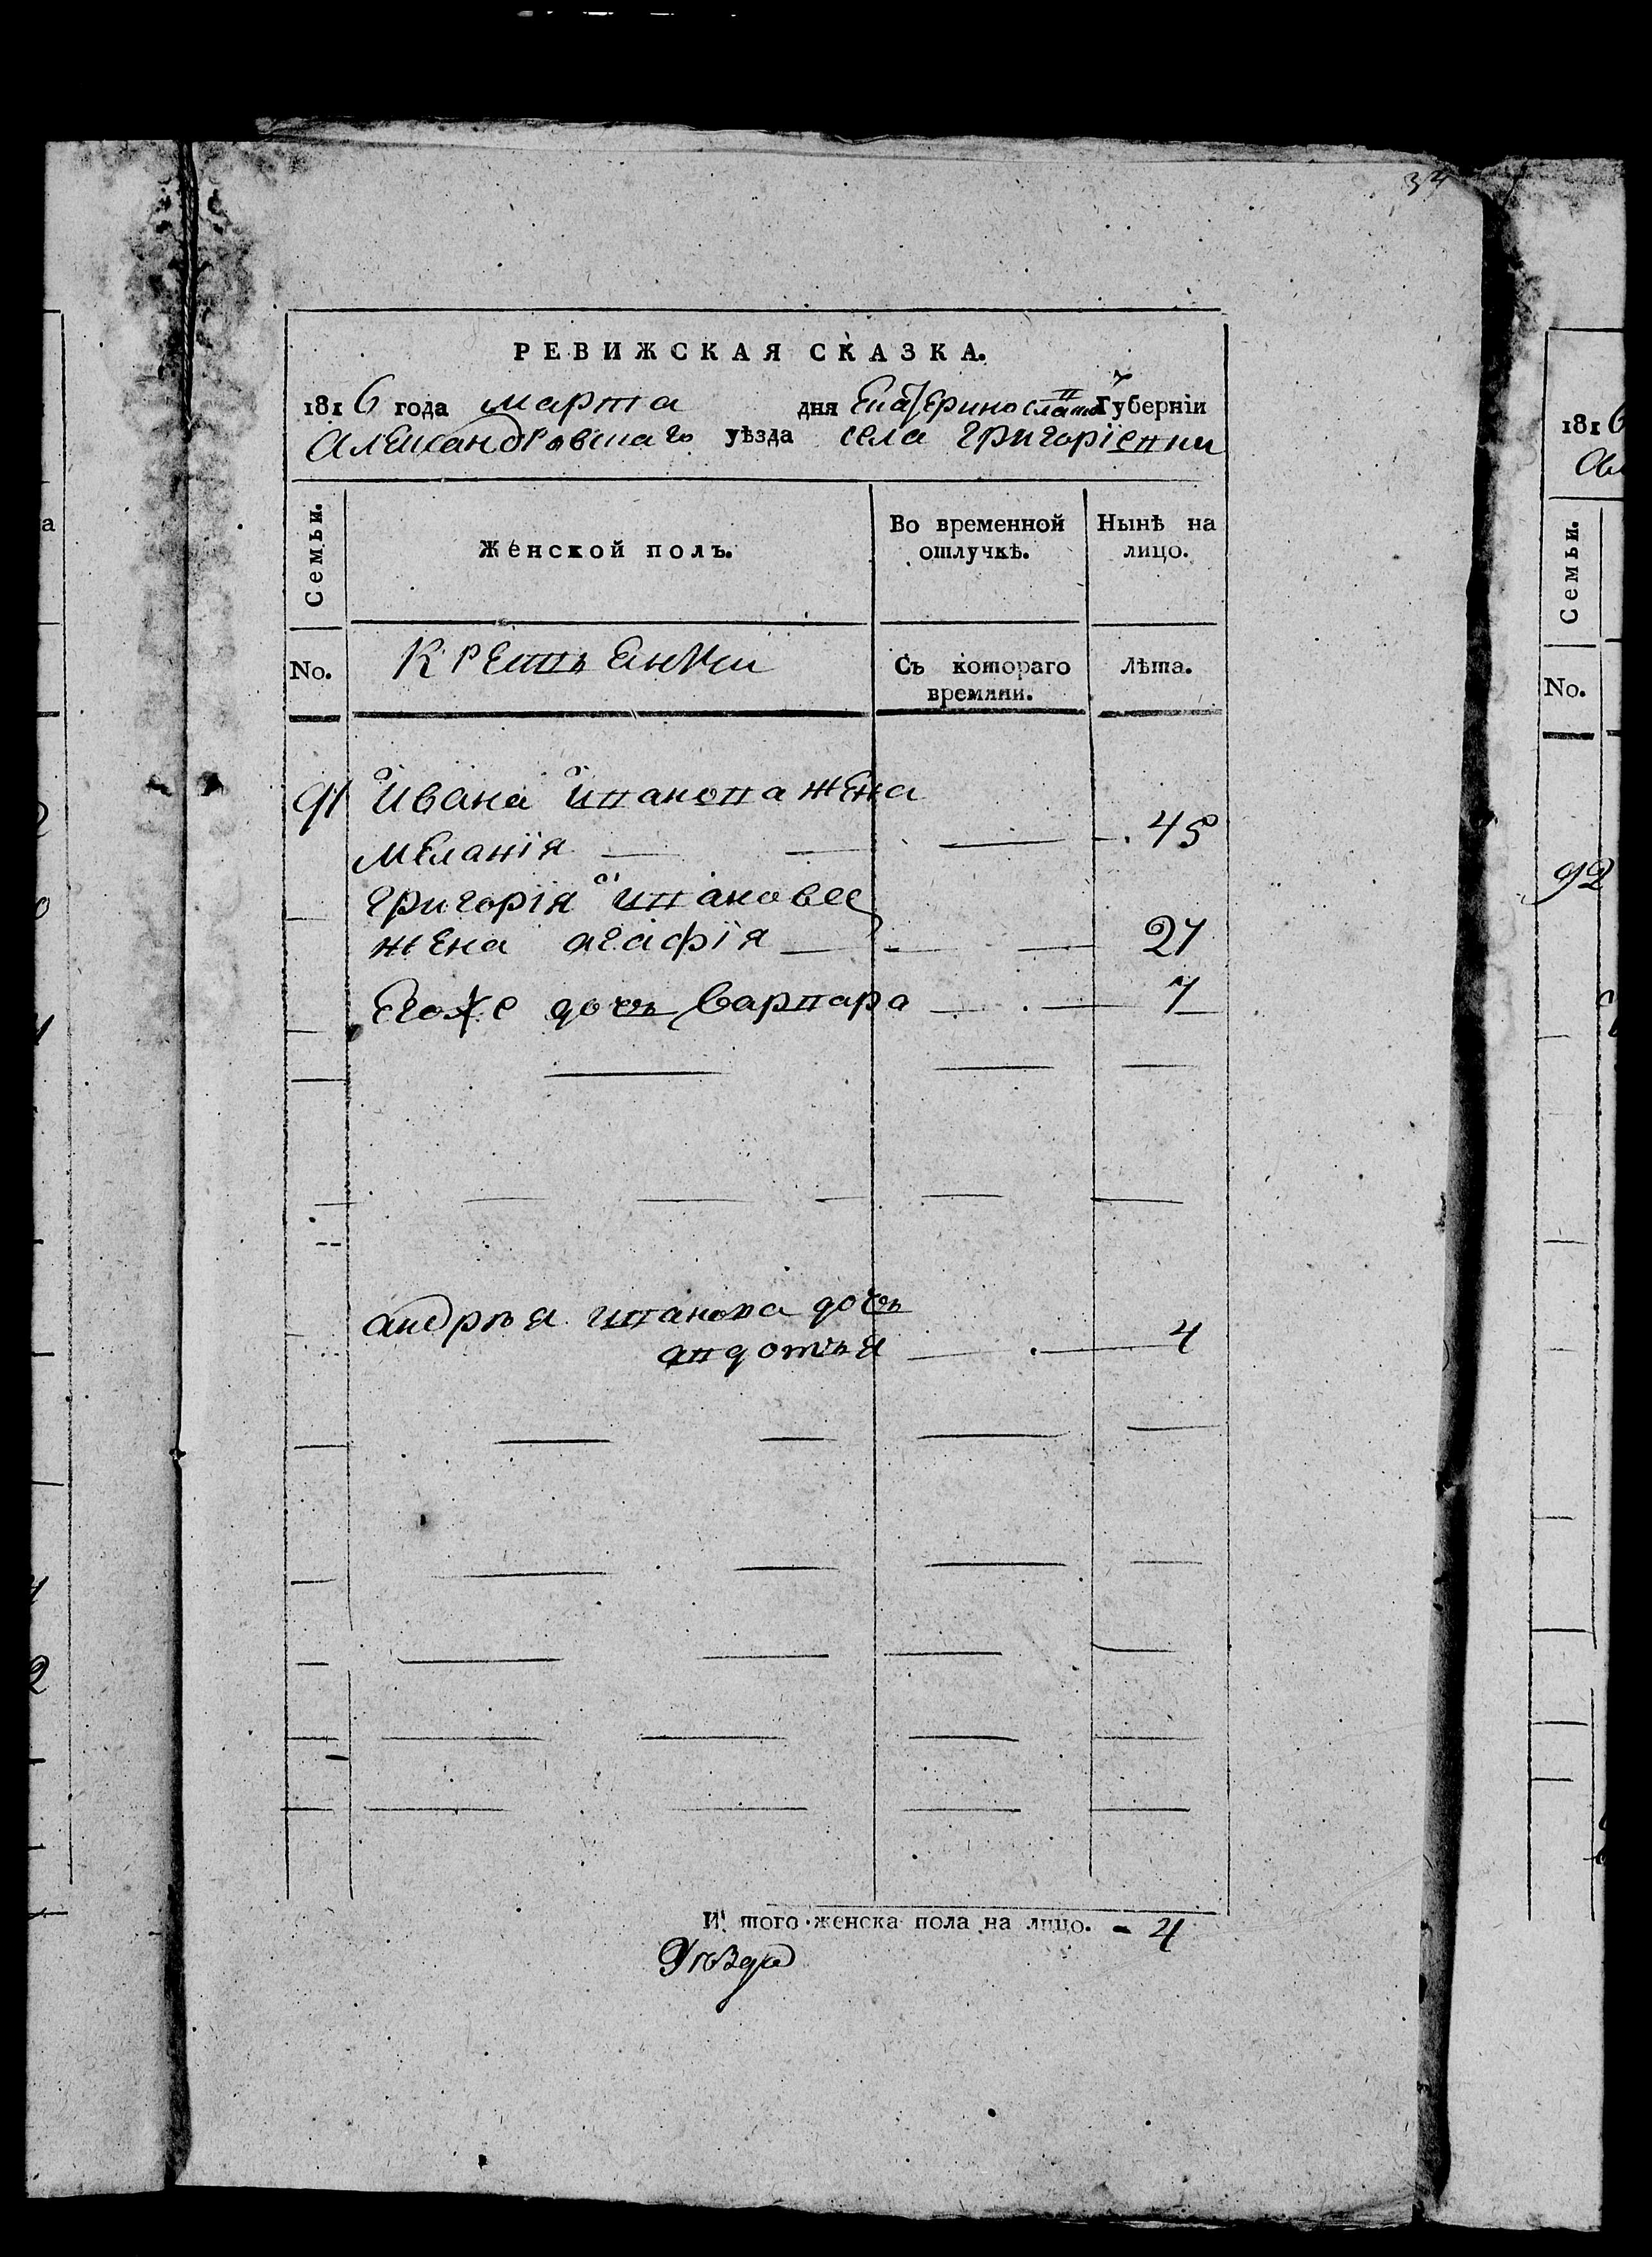 34
РЕВИЖСКАЯ СКАЗКА.
1816 года марта дня Екатеринославской Губерніи
Александровскаго уѣзда села григоріевки
Семьи.
Женской полъ.
Во временной отлучкѣ.
Нынѣ на лицо.
No.
крестьянки
Съ котораго времяни.
Лѣта.
91 ивана иванова жена
меланія 45
григорія иванова
жена агафія 27
Егоже дочь варвара 7
андрѣя иванова дочь
авдотья 4
И того женска пола на лицо. 4
1816
Семьи.
No.
92